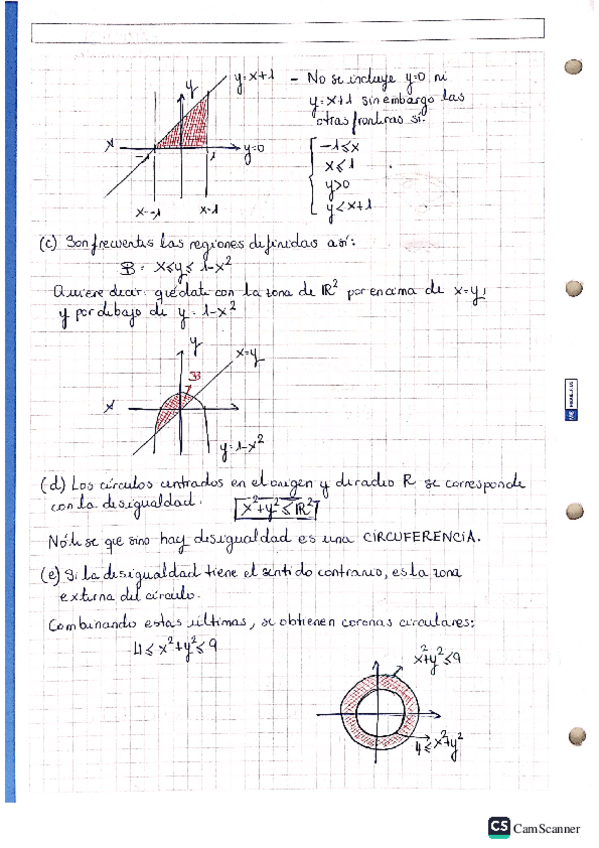 y=x+1 - No se incluye y=0 ni
y=x+1 sin embargo las
otras fronteras sí:
y
x -1 1 y=0
x=-1 x=1
-1≤x
x≤1
y>0
y<x+1
(c) Son frecuentes las regiones definidas así:
B = x≤y≤ 1-x²
Quiere decir: quédate con la zona de ℝ² por encima de x=y,
y por debajo de y = 1-x²
y x=y
B
x
y=1-x²
(d) Los círculos centrados en el origen y de radio R se corresponde
con la desigualdad. x²+y² ≤ ℝ²
Nótese que si no hay desigualdad es una CIRCUFERENCIA.
(e) Si la desigualdad tiene el sentido contrario, es la zona
externa del círculo.
Combinando estas últimas, se obtienen coronas circulares:
4≤ x²+y² ≤9
x²+y²≤9
4≤x²+y²
CS CamScanner